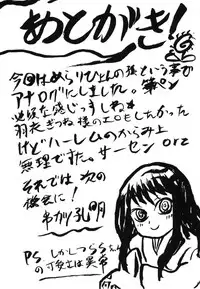 あとがき!
今回はぬらりひょんの孫という事で
アナログにしました。筆ペン
適度な感じっすしね
羽衣ぎつね様のエロEしたかった
けどハーレムのからみ上
無理でした。サーセン orz
それでは 次の
機会に!
PS. しかしつらら
の可愛さは異常